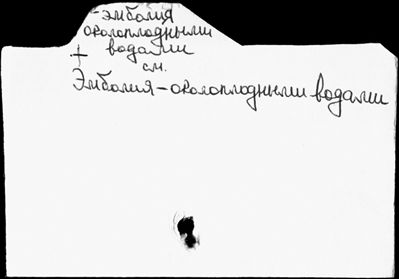 -эмболия
околоплодными
водами
+
см.
Эмболия-околоплодными водами